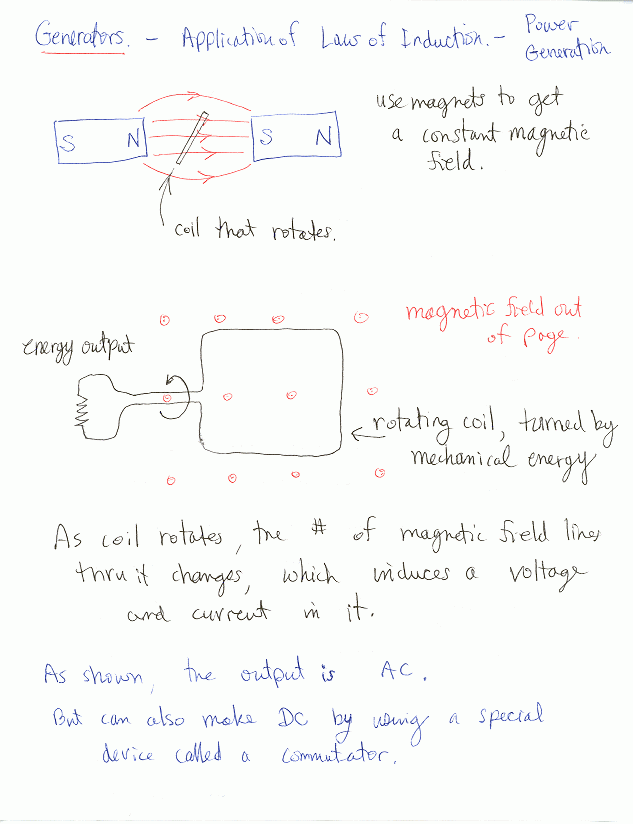 Generators. - Application of Laws of Induction. - Power
Generation
use magnets to get
a constant magnetic
field.
S N S N
coil that rotates.
magnetic field out
of page.
energy output
rotating coil, turned by
mechanical energy
As coil rotates, the # of magnetic field lines
thru it changes, which induces a voltage
and current in it.
As shown, the output is AC.
But can also make DC by using a special
device called a commutator.